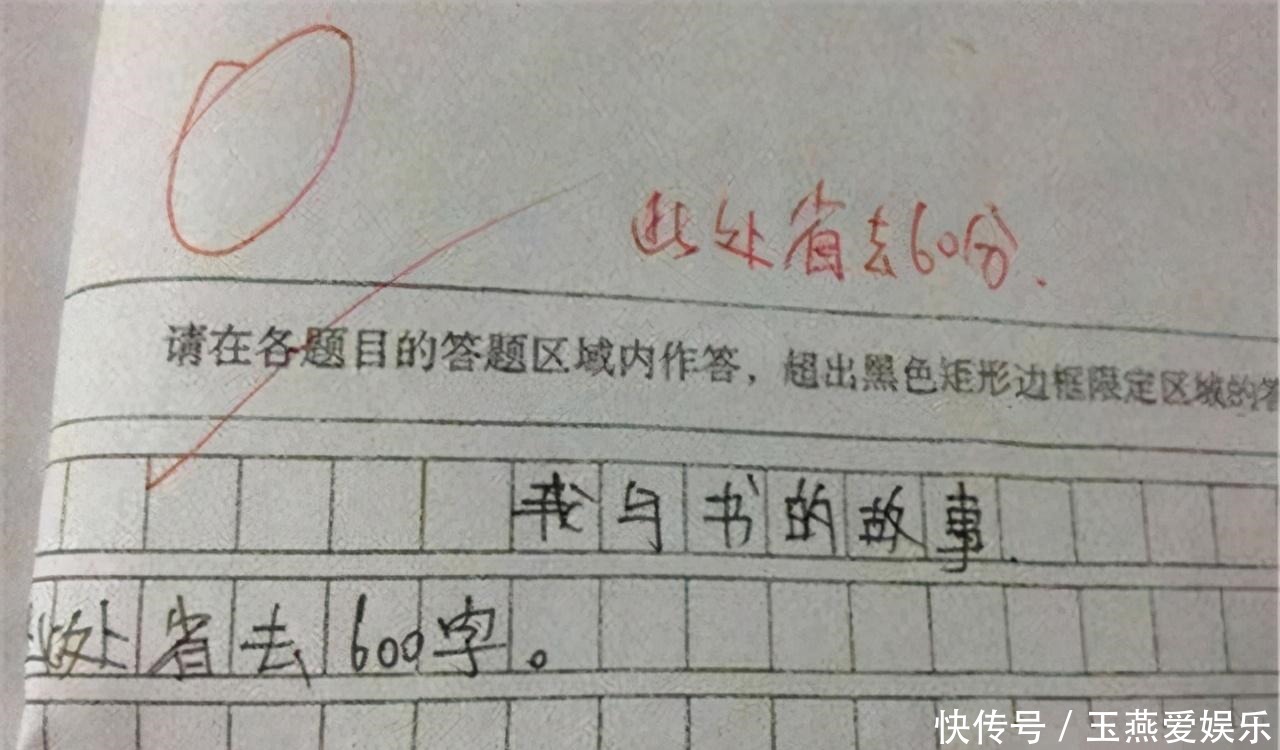 此处省去60分.
请在各题目的答题区域内作答，超出黑色矩形边框限定区域的答
我与书的故事.
此处省去600字。
快传号 / 玉燕爱娱乐